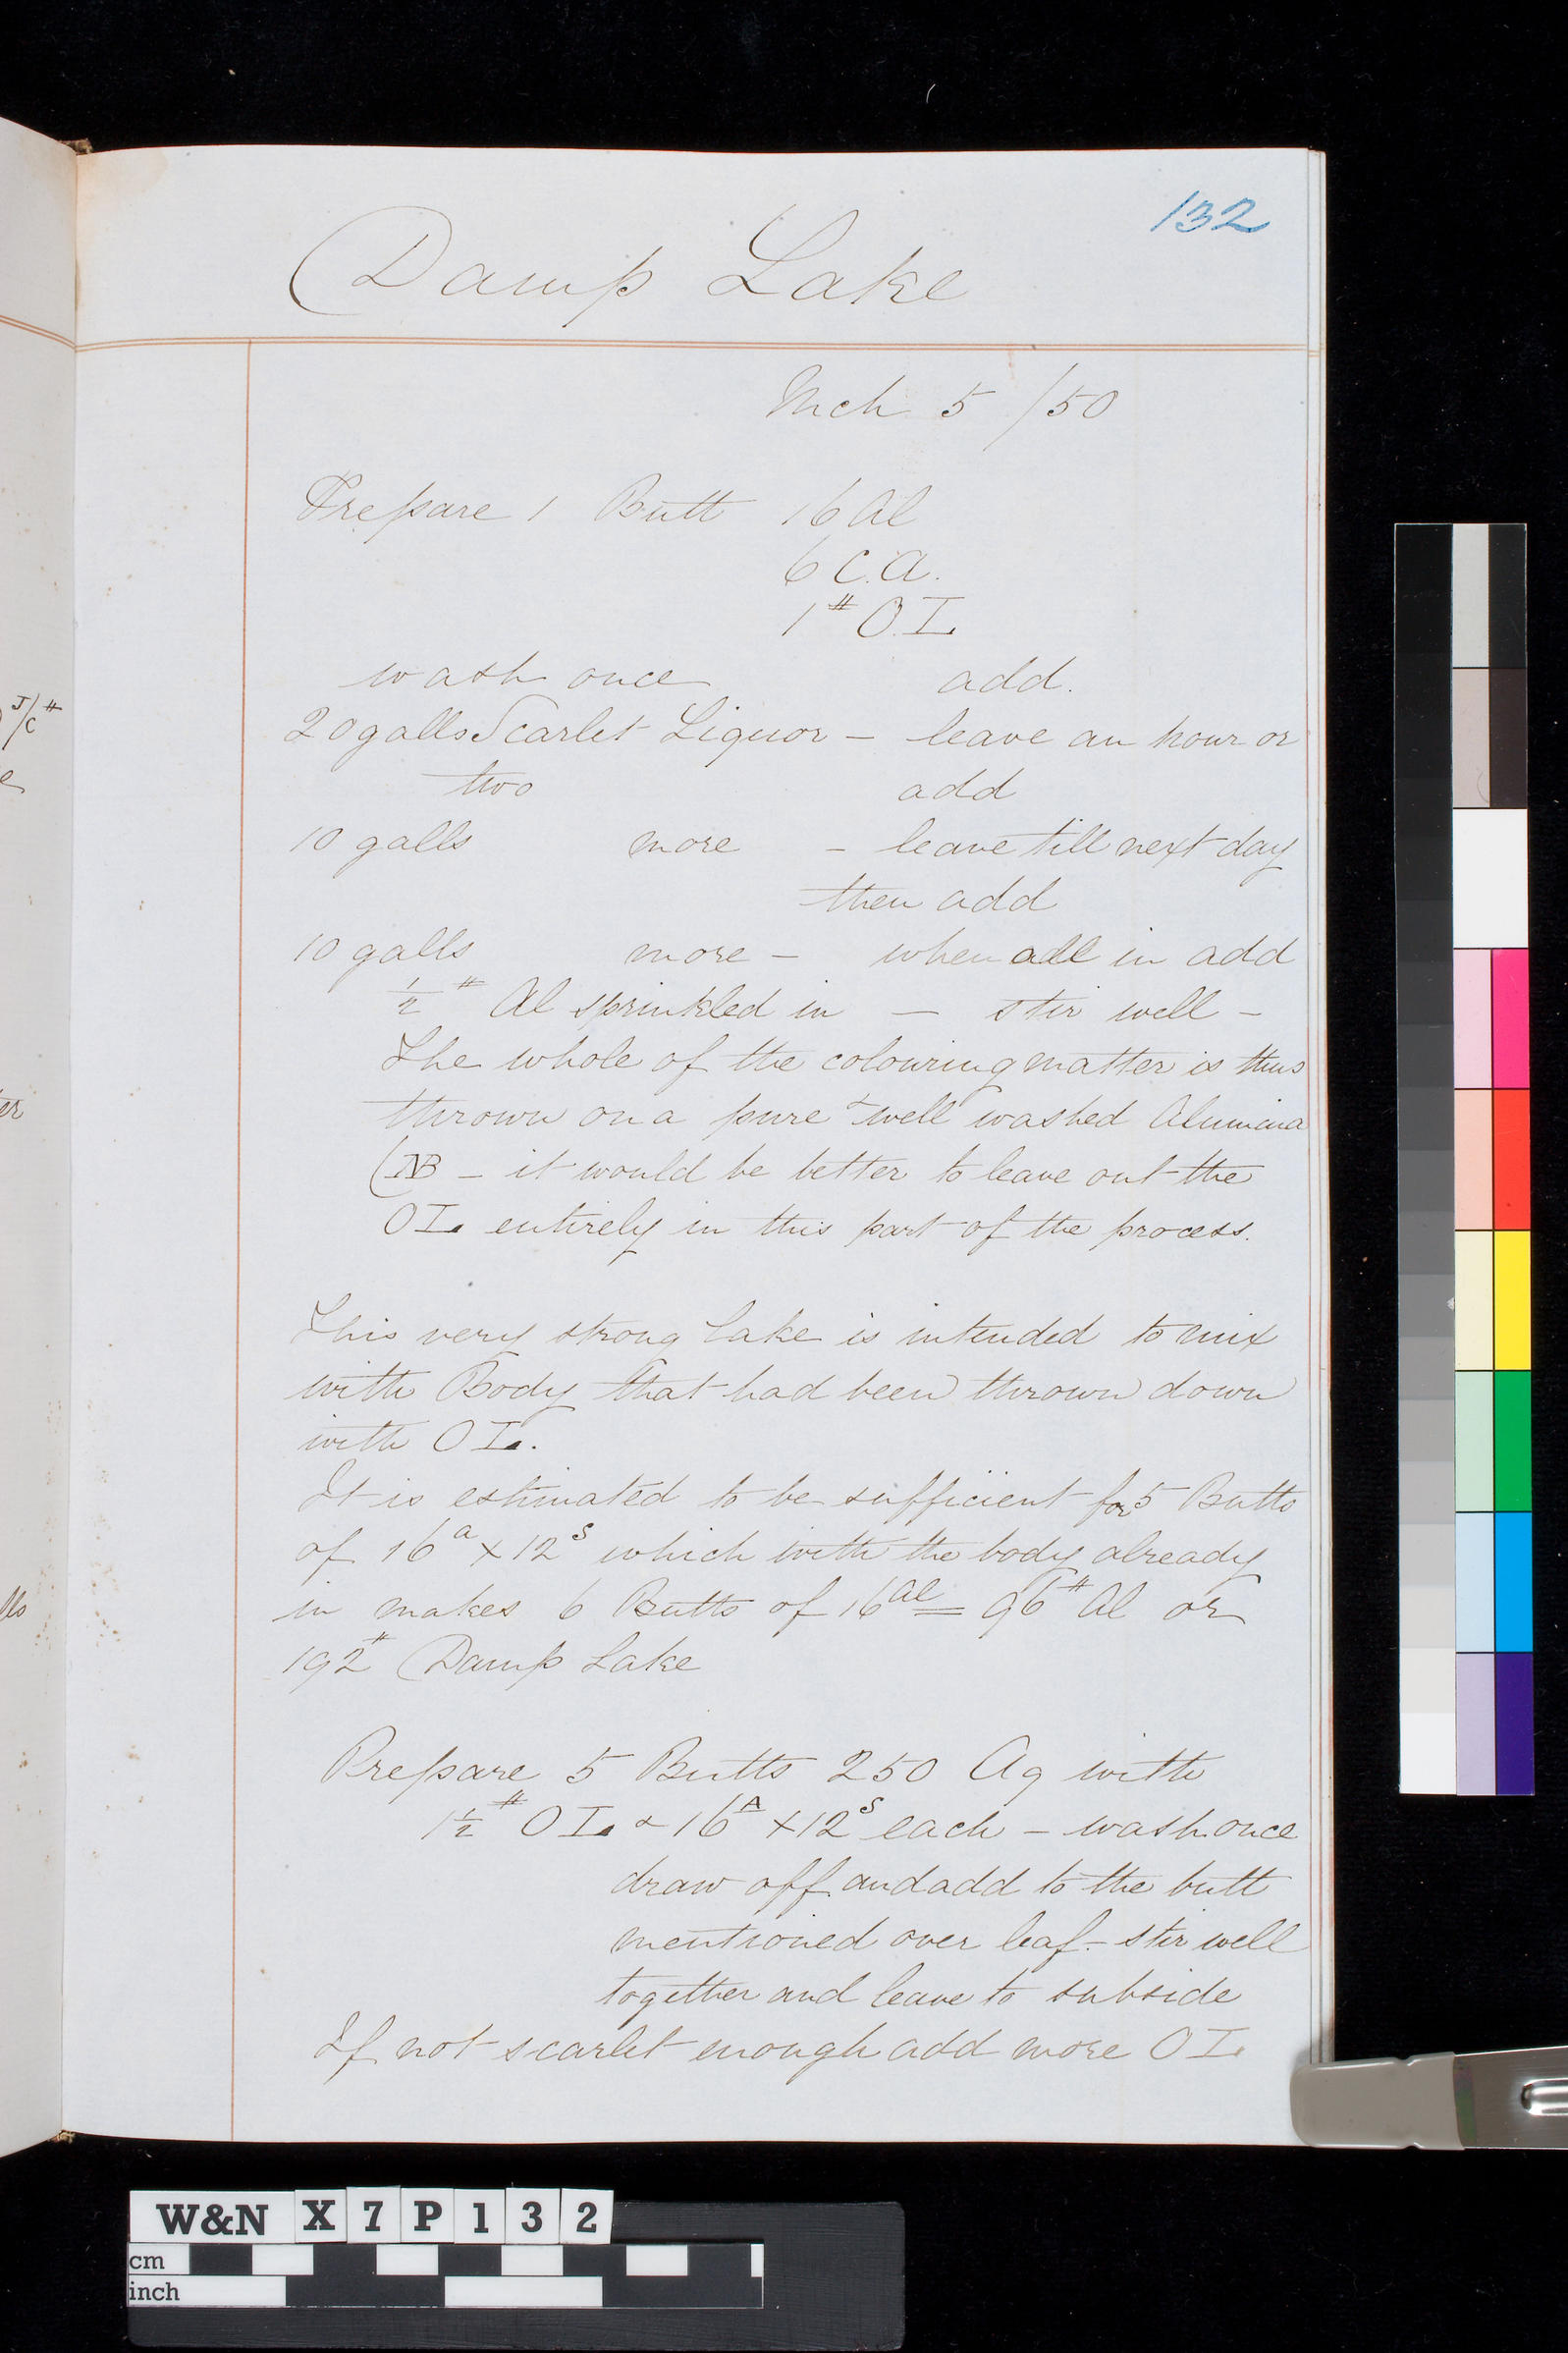 132
Damp Lake
Mch 5 /50
Prepare 1 Butt 16 Al
6 C.A.
1# O.I.
wash once add.
20 galls Scarlet Liquor – leave an hour or
two add
10 galls more – leave till next day
then add
10 galls more – when all in add
½# Al sprinkled in – stir well –
The whole of the colouring matter is thus
thrown on a pure & well washed Alumina
(NB – it would be better to leave out the
OI. entirely in this part of the process.
This very strong lake is intended to mix
with Body that had been thrown down
with OI.
It is estimated to be sufficient for 5 Butts
of 16ᵃ × 12ˢ which with the body already
in makes 6 Butts of 16ᴬˡ = 96# Al or
192# Damp Lake
Prepare 5 Butts 250 Ag with
1½# OI. & 16ᴬ × 12ˢ each – wash once
draw off and add to the butt
mentioned over leaf – stir well
together and leave to subside
If not scarlet enough add more OI.
J/C#
e
er
lls
W&N X 7 P 1 3 2
cm
inch